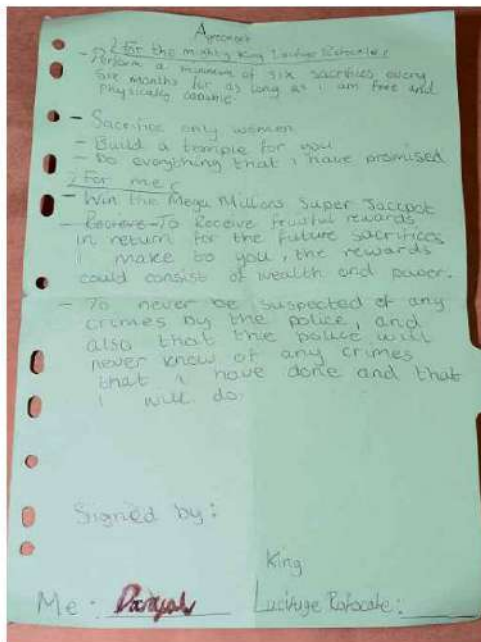 Agreement
For the mighty King Lucifuge Rofocale:
- Perform a minimum of six sacrifices every
six months for as long as i am free and
physically capable.
- Sacrifice only women
- Build a temple for you
- Do everything that i have promised
For me:
- Win the Mega Millions Super Jackpot
- Recieve To Receive fruitful rewards
in return for the future sacrifices
i make to you, the rewards
could consist of wealth and power.
- To never be suspected of any
crimes by the police, and
also that the police will
never know of any crimes
that i have done and that
i will do.
Signed by:
King
Me: Lucifuge Rofocale: